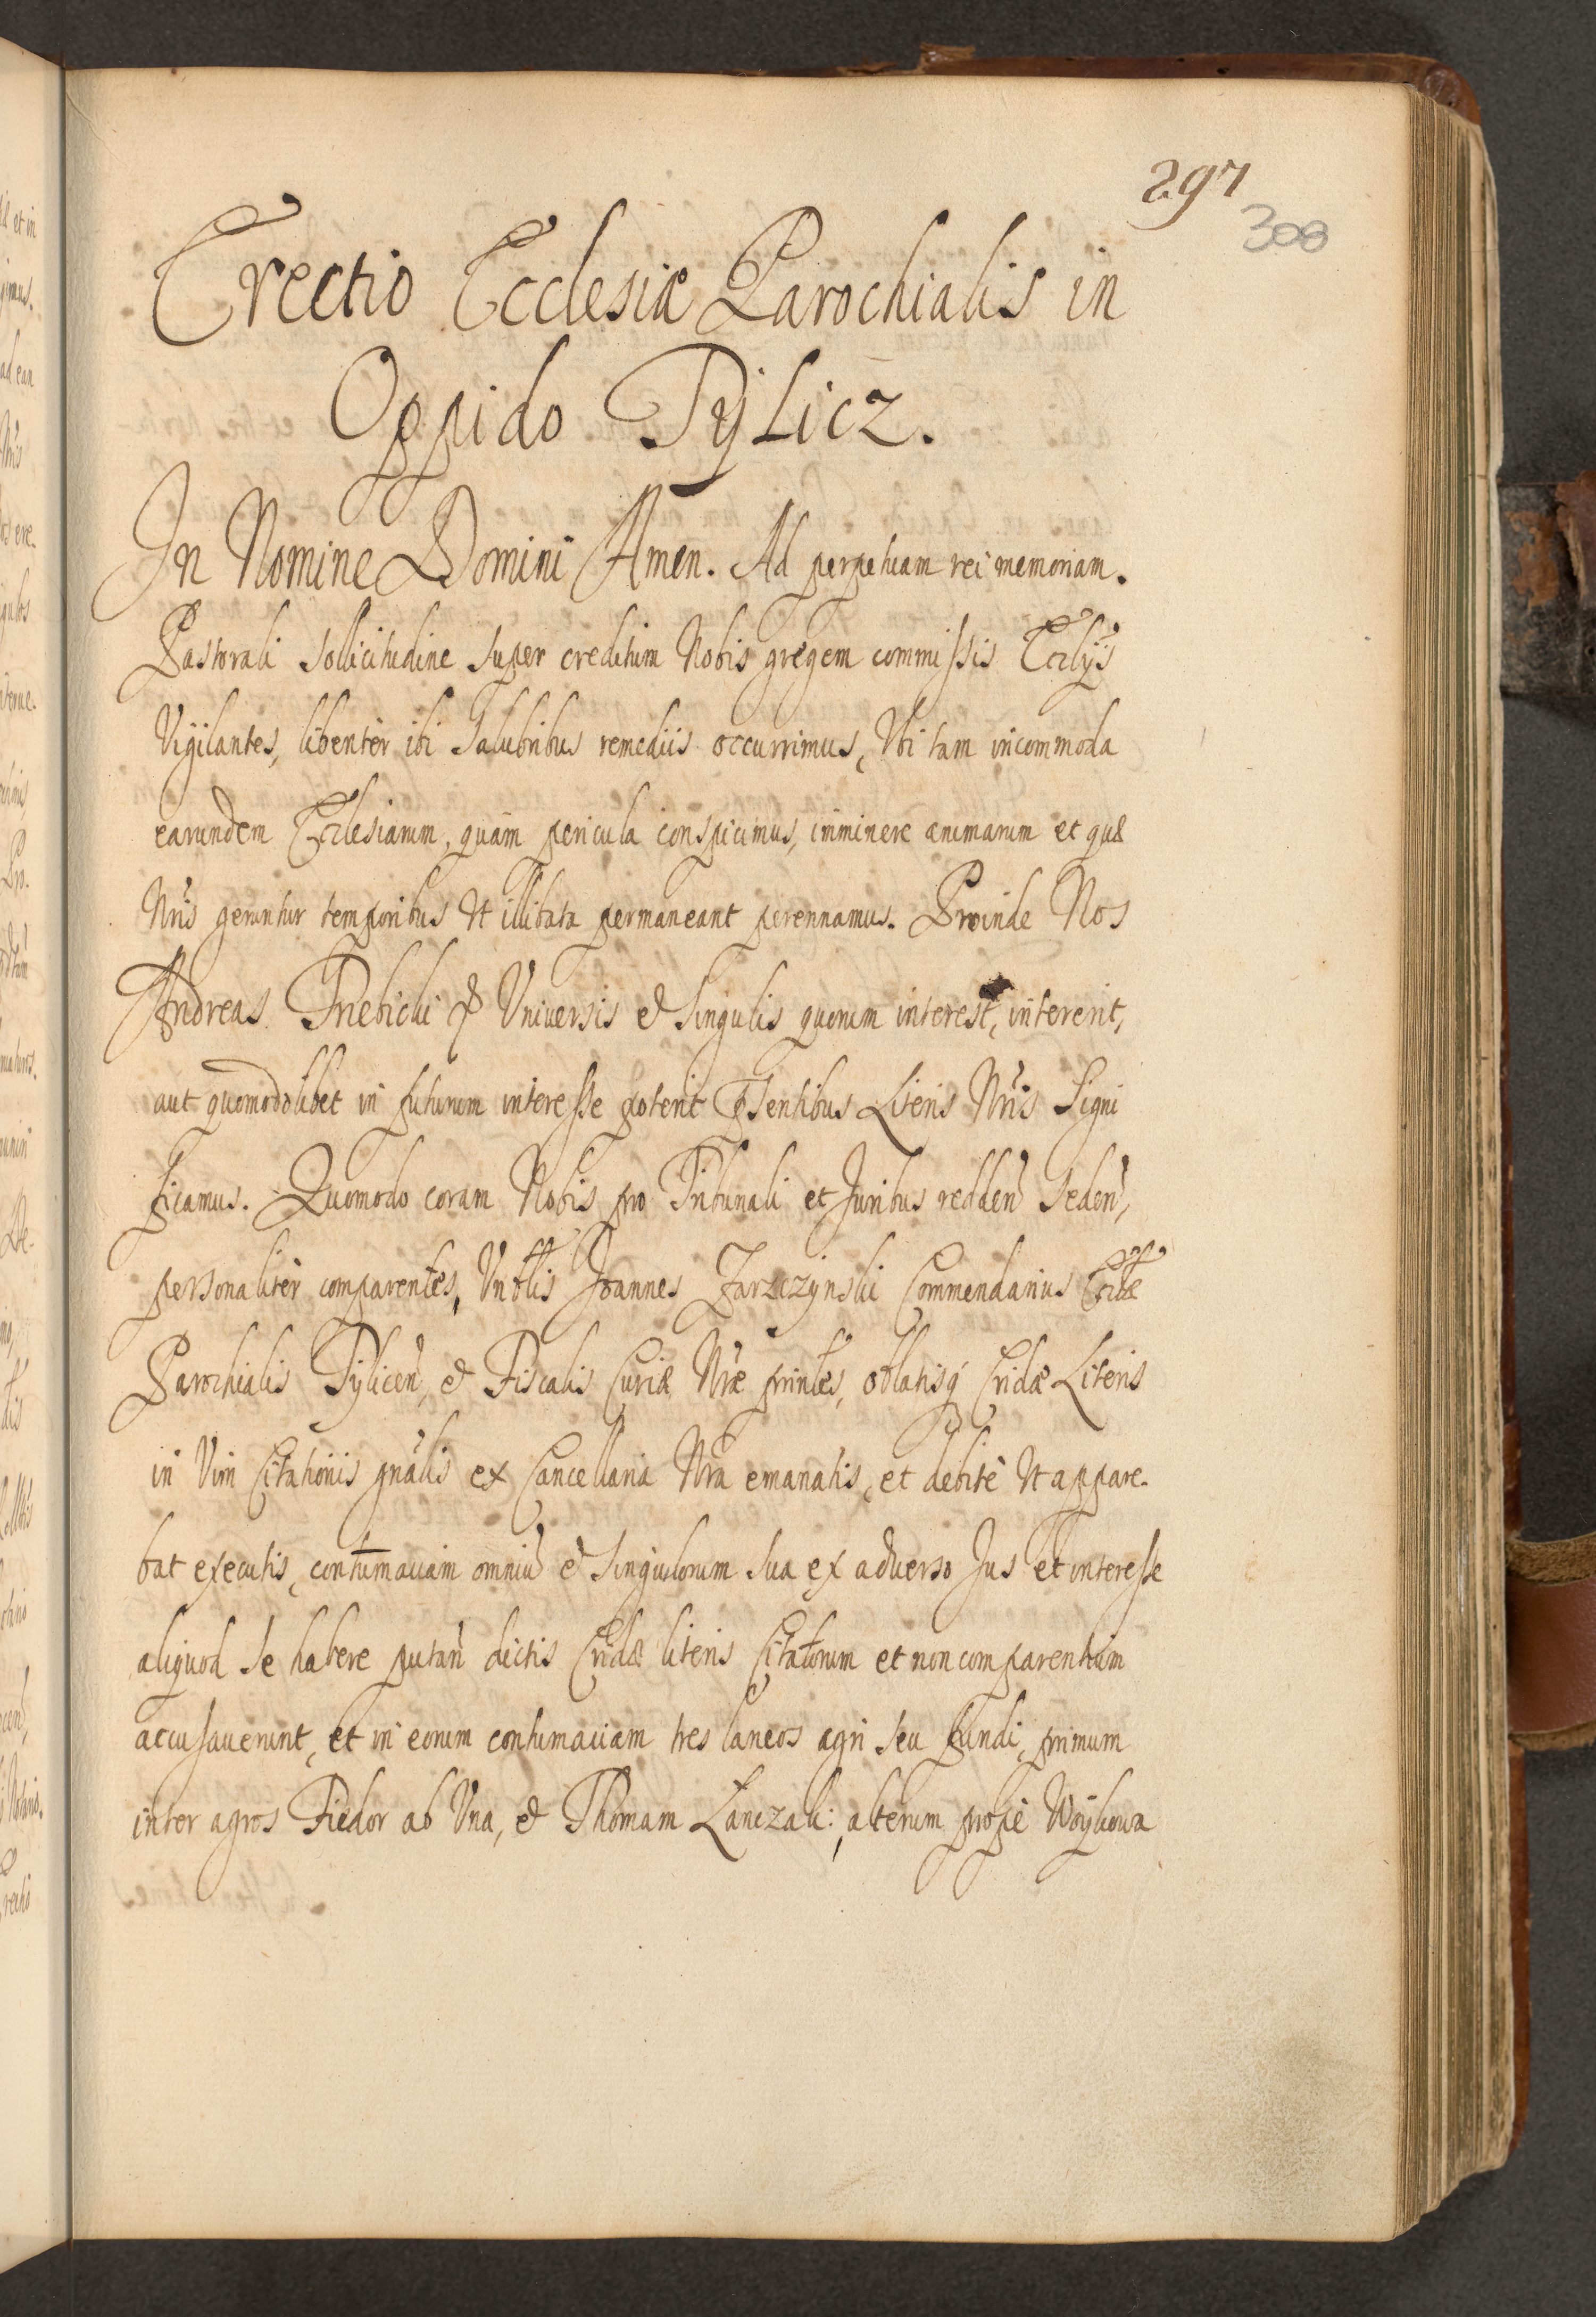 297
308
Erectio Ecclesiæ Parochialis in
Oppido Tÿlicz.
In Nomine Domini Amen. Ad perpetuam rei memoriam.
Pastorali sollicitudine super creditum Nobis gregem commissis Eccliÿs
Vigilantes, libentèr ibi Salubribus remediis occurrimus, Vbi tam incommoda
earundem Ecclesiarum, quàm pericula conspicimus, imminere animarum et quæ
Nris geruntur temporibus Vt illibata permaneant perennamus. Proinde Nos
Andreas Trzebicki & Vniversis et Singulis quorum interest, intererit,
aut quomodolibet in futurum interesse poterit pſentibus Literis Nris Signi
ficamus. Quomodo coram Nobis pro Tribunali et Juribus redden Seden,
personalitèr comparentes, Vnblis Joannes Zarzczÿnski Commendarius Ecclæ
Parochialis Tÿlicen, et Fiscalis Curiæ Nræ printes, oblatisq Cridæ Literis
in Vim Citationis gnalis ex Cancellaria Nra emanatis, et debitè Vt appare-
bat executis, contumaciam omniu et Singulorum Sua ex adverso Jus et interesse
aliquod Se habere putan dictis Cridæ literis Citatorum et non comparentium
accusaverunt, et in eorum contumaciam tres laneos agri seu fundi, primum
inter agros Fiedor ab Vna, et Thomam Lanczak: alterum propè Woÿkowa